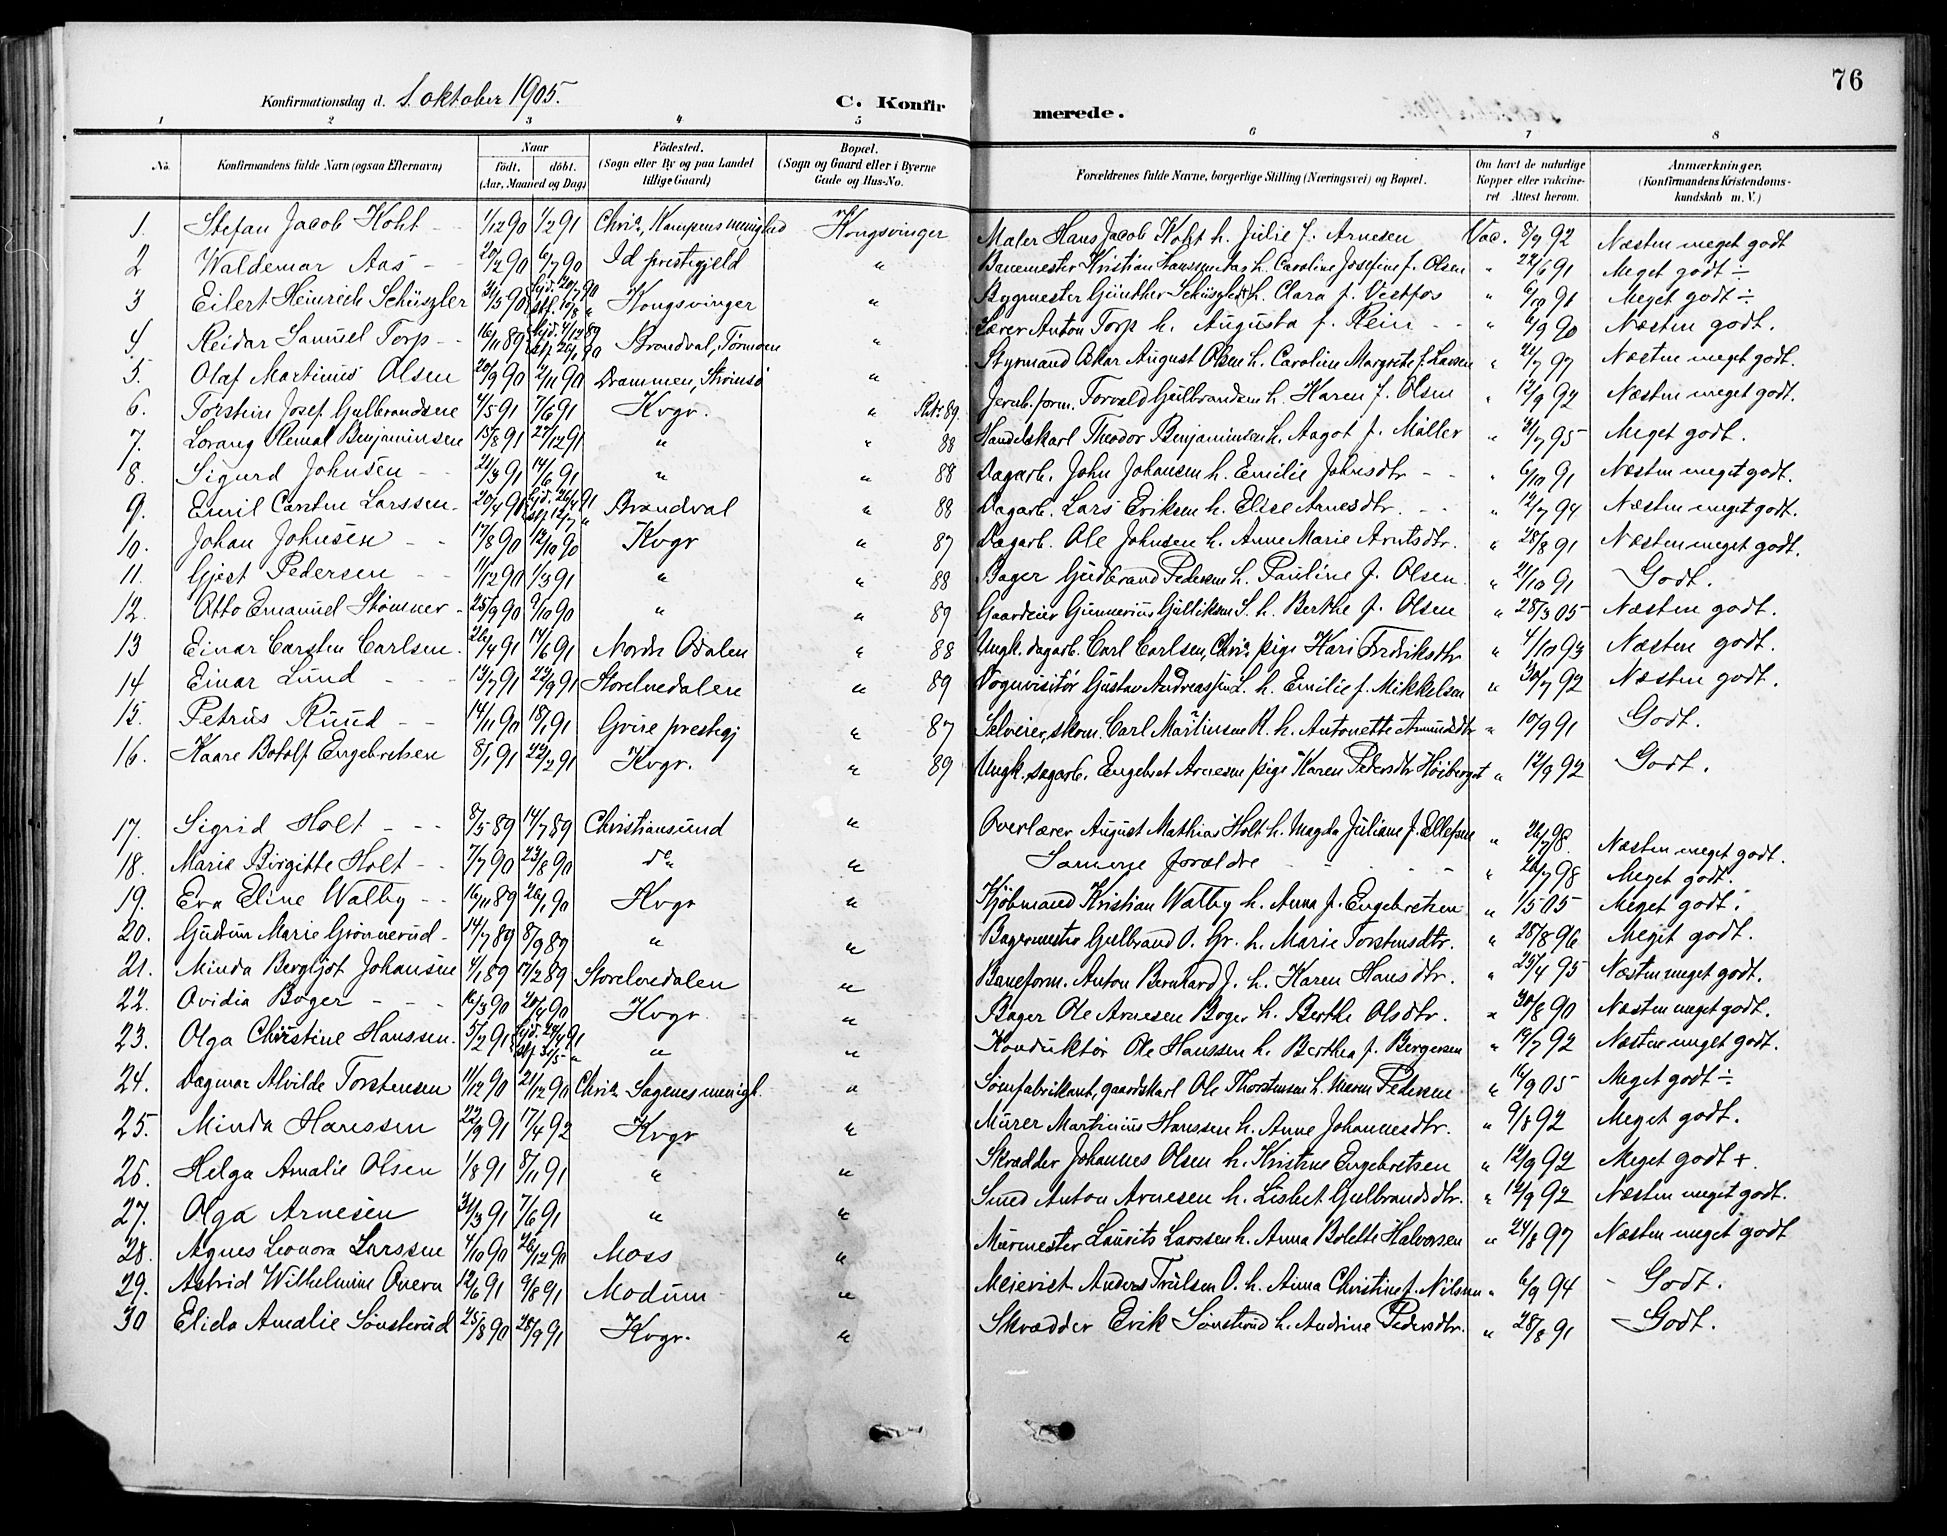 76
Konfirmationsdag d. 1. oktober 1905.
C. Konfirmerede.
1 2 3 4 5 6 7 8
No. | Konfirmandens fulde Navn (ogsaa Efternavn) | Naar født. døbt. (Aar, Maaned og Dag) | Fødested. (Sogn eller By og paa Landet tillige Gaard) | Bopæl. (Sogn og Gaard eller i Byerne Gade og Hus-No. | Forældrenes fulde Navne, borgerlige Stilling (Næringsvei) og Bopæl. | Om havt de naturlige Kopper eller vakcineret Attest herom. | Anmærkninger. (Konfirmandens Kristendomskundskab m. V.)
1. Stefan Jacob Koht 1/12 90 1/2 91 Chria, Kampens menighed Kongsvinger Maler Hans Jacob Koht h. Julie f. Arnesen Vac. 8/7 92 Næsten meget godt
2 Waldemar Aas 20/2 90 6/7 90 Id prestegjeld " Banemester Kristian Hanssen Aas h. Caroline Josefine f. Olsen " 22/6 91 Meget godt ÷
3 Eilert Heinrich Schüszler 31/3 90 hjd. 20/7 90 stf. 10/8 " Kongsvinger " Bygmester Günther Schüszler h. Clara f. Vestfos " 6/10 91 Meget godt ÷
4 Reidar Samuel Torp 16/11 89 hjd. 4/12 89 stf. 26/1 90 Brandval, Tørmoen " Lærer Anton Torp h. Augusta f. Rein " 6/9 90 Næsten godt.
5. Olaf Martinus Olsen 20/9 90 2/11 90 Drammen, Strømsø " Styrmand Oskar August Olsen h. Caroline Margrete f. Larsen " 21/7 97 Næsten meget godt.
6. Torstein Josef Gulbrandsen 4/5 91 7/6 91 Kvgr. " 89. Jernb. form. Torvald Gulbrandsen h. Karen f. Olsen " 12/9 92 Næsten meget godt.
7. Lorang Olemal Benjaminsen 15/8 91 27/12 91 " " 88 Handelskarl Theodor Benjaminsen h. Aagot f. Møller " 31/7 95 Meget godt.
8. Sigurd Johnsen 21/3 91 14/6 91 " " 88 Dagarb. John Johansen h. Emilie Johnsdtr " 6/10 91 Næsten meget godt.
9. Emil Carsten Larssen 20/4 91 hjd. 26/4 91 stf. 12/7 " Brandval " 88 Dagarb. Lars Eriksen h. Elise Arnesdtr. " 12/7 94 Næsten meget godt.
10. Johan Johnsen 17/8 90 12/10 90 Kvgr " 87 Dagarb. Ole Johnsen h. Anne Marie Arntsdtr. " 28/8 91 Næsten meget godt.
11. Gjest Pedersen 11/12 90 1/3 91 " " 88 Bager Gudbrand Pedersen h. Pauline f. Olsen " 21/10 91 Godt.
12. Otto Emanuel Stømner 25/9 90 9/10 90 " " 89 Gaardeier Gunnerius Gulliksen S. h. Berthe f. Olsen " 28/3 05 Næsten godt.
13 Einar Carsten Carlsen 26/4 91 14/6 91 Nordre Odalen " 88 Ungk. dagarb. Carl Carlsen, Chria, pige Kari Fredriksdtr " 4/10 93 Næsten godt.
14 Einar Lund 13/7 91 22/9 91 Storelvedalen " 89 Vognvisitør Gustav Andreassen L. h. Emilie f. Mikkelsen " 30/7 92 Næsten godt.
15. Petrus Ruud 14/11 90 18/1 91 Grue prestegj " 87 Selveier, skom. Carl Martinsen R. h. Antonette Amundsdtr " 10/9 91 Godt.
16. Kaare Botolf Engebretsen 8/1 91 22/2 91 Kvgr. " 89 Ungk. dagarb. Engebret Arnesen pige Karen Pedersdtr Høiberget " 12/9 92 Godt.
17. Sigrid Holt 8/5 89 14/7 89 Christiansund " Overlærer August Mathias Holt h. Magda Juliane f. Ellefsen " 26/7 98. Næsten meget godt.
18. Marie Birgitte Holt 7/7 90 23/8 90 do " Samme forældre " 26/7 98 Meget godt.
19. Eva Eline Walby 16/11 89 26/1 90 Kvgr " Kjøbmand Kristian Walby h. Anna f. Engebretsen " 1/5 05 Meget godt.
20. Gudrun Marie Grønnerud 14/7 89 8/9 89 " " Bagermester Gulbrand O. Gr. h. Marie Torstensdtr. " 28/8 96 Meget godt.
21. Minda Bergljot Johansen 4/1 89 17/2 89 Storelvedalen " Baneform. Anton Bernhard J. h. Karen Hansdtr. " 25/4 95 Næsten meget godt.
22. Ovidia Boger 16/3 90 20/4 90 Kvgr. " Bager Ole Arnesen Boger h. Berthe Olsdtr. " 30/8 90 Næsten meget godt.
23. Olga Christine Hanssen 5/2 91 hjd. 24/4 91 stf. 31/5 " " " Konduktør Ole Hanssen h. Berthea f. Bergersen " 12/7 92 Næsten meget godt.
24. Dagmar Alvilde Torstensen 11/12 90 21/12 90 Chria Sagenes menigh. " Sømfabrikant, gaardskarl Ole Thorstensen h. Maren Pedersen " 16/9 05 Meget godt ÷
25. Minda Hanssen 22/9 91 17/4 92 Kvgr " Murer Martinius Hanssen h. Anne Johannesdtr. " 9/8 92 Meget godt.
26. Helga Amalie Olsen 1/8 91 8/11 91 " " Skrædder Johannes Olsen h. Kristine Engebretsen " 12/9 92 Meget godt +.
27. Olga Arnesen 31/3 91 7/6 91 " " Smed Anton Arnesen h. Lisbet Gulbrandsdtr. " 12/9 92 Næsten meget godt.
28. Agnes Leonora Larssen 4/10 90 26/12 90 Moss " Murmester Laurits Larssen h. Anna Bolette Halvorsen " 24/8 97 Næsten meget godt
29. Astrid Wilhelmine Overn 12/6 91 9/8 91 Modum " Meierist Anders Trulsen O. h. Anna Christine f. Nilsen " 6/9 94 Godt.
30 Elida Amalie Sønsterud 25/8 90 28/9 91 Kvgr. " Skrædder Erik Sønsterud h. Andrine Pedersdtr. " 28/8 91 Godt.